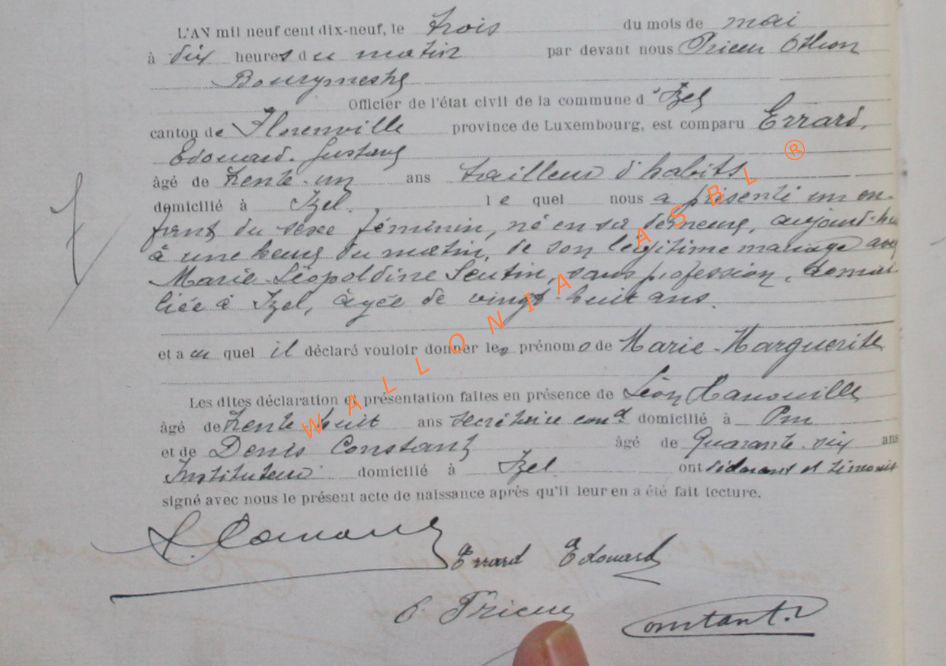 L'AN mil neuf cent dix-neuf, le trois du mois de mai
à dix heures du matin par devant nous Prieur Othon
Bourgmestre
Officier de l'état civil de la commune d'Izel
canton de Florenville province de Luxembourg, est comparu Errard,
Edouard-Gustave
âgé de trente-un ans tailleur d'habits
domicilié à Izel. le quel nous a présenté un en-
fant du sexe féminin, né en sa demeure, aujourd'hui
à une heure du matin, de son légitime mariage avec
Marie-Léopoldine Seutin, sans profession, domici
liée à Izel, âgée de vingt-huit ans.
et au quel il déclaré vouloir donner les prénoms de Marie-Marguerite
Les dites déclaration et présentation faites en présence de Léon
âgé de trente huit ans secrétaire com^al domicilié à Pin
et de Denis Constant âgé de quarante-six ans
Instituteur domicilié à Izel ont déclarant et témoins
signé avec nous le présent acte de naissance après qu'il leur en a été fait lecture.
Errard Edouard
O Prieur Constant.
WALLONIA ASBL ®